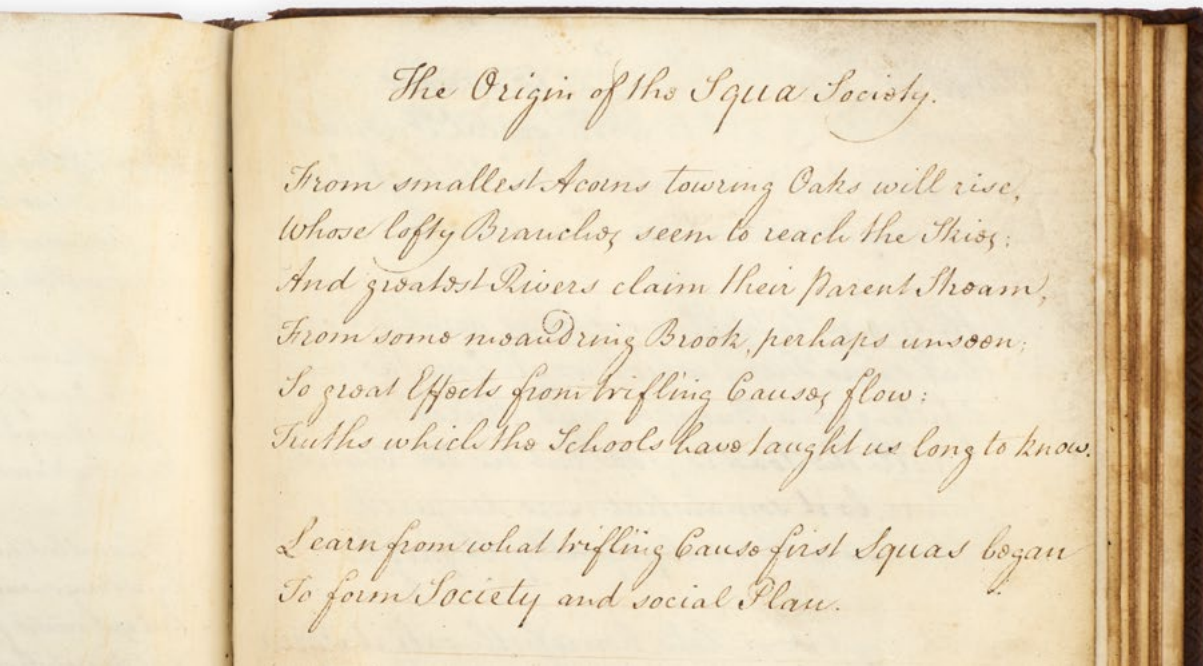 The Origin of the Squa Society.
From smallest Acorns towring Oaks will rise,
Whose lofty Branches seem to reach the Skies:
And greatest Rivers claim their Parent Stream,
From some meandring Brook, perhaps unseen;
So great Effects from trifling Causes flow:
Truths which the Schools have taught us long to know.
Learn from what trifling Cause first Squas began
To form Society and social Plan.